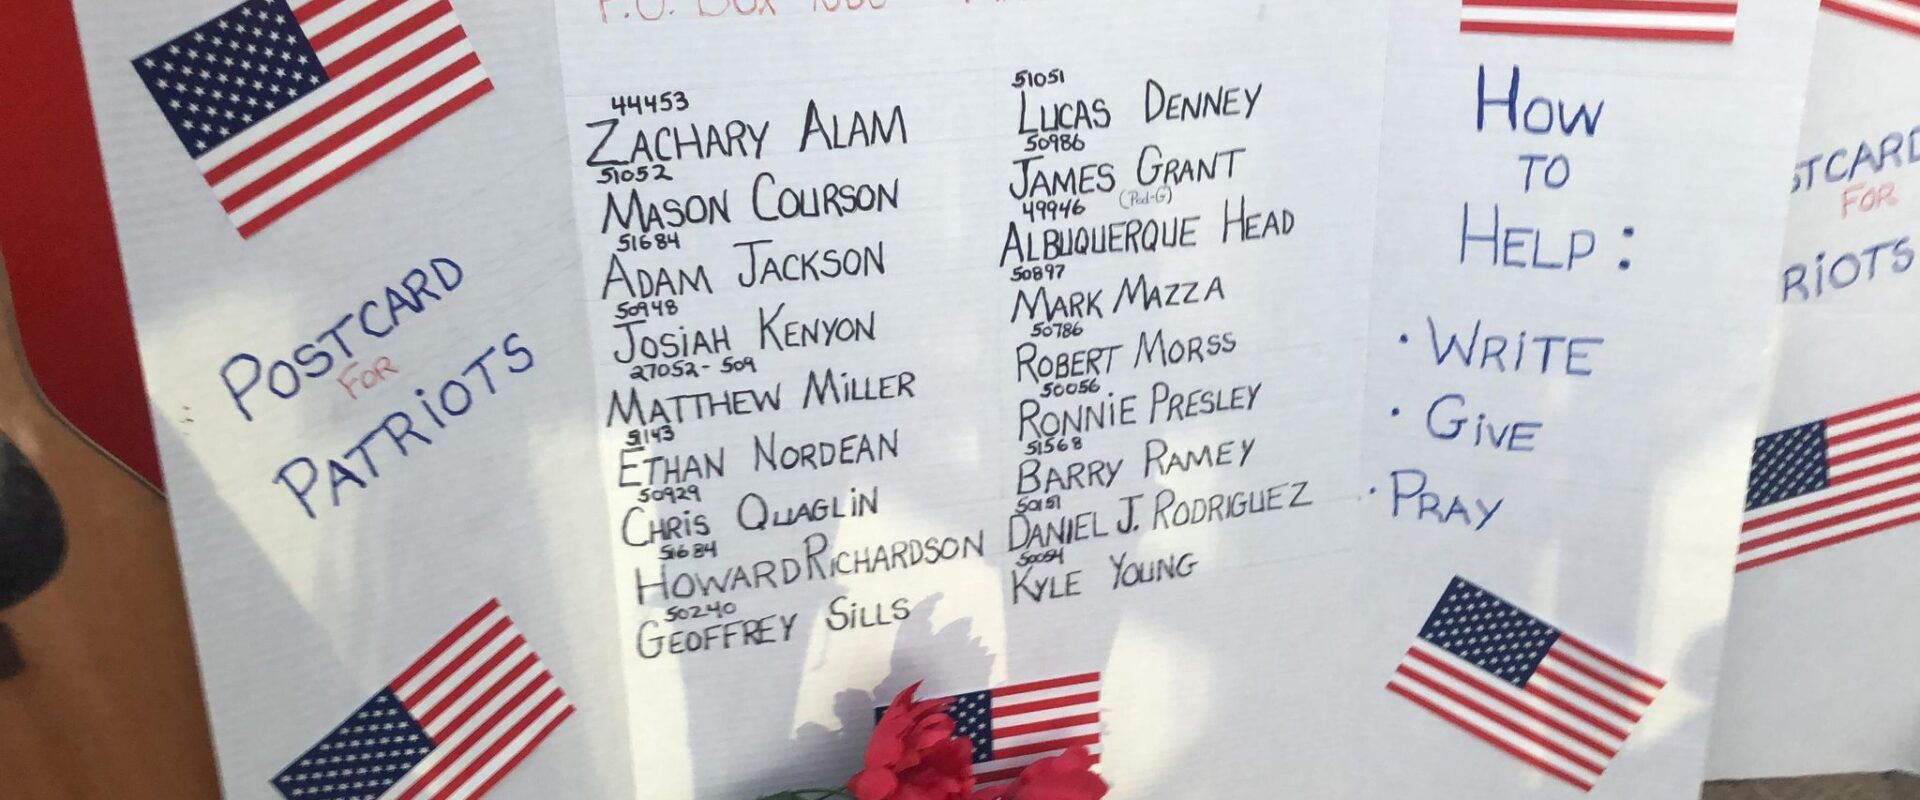 P.O. Box
POSTCARD
FOR
PATRIOTS
44453
ZACHARY ALAM
51052
MASON COURSON
51684
ADAM JACKSON
50948
JOSIAH KENYON
27052-509
MATTHEW MILLER
51143
ETHAN NORDEAN
50929
CHRIS QUAGLIN
51684
HOWARD RICHARDSON
50240
GEOFFREY SILLS
51051
LUCAS DENNEY
50986
JAMES GRANT
(Pod-G)
49946
ALBUQUERQUE HEAD
50897
MARK MAZZA
50786
ROBERT MORSS
50056
RONNIE PRESLEY
51568
BARRY RAMEY
50151
DANIEL J. RODRIGUEZ
50054
KYLE YOUNG
HOW
TO
HELP:
• WRITE
• GIVE
• PRAY
STCARD
FOR
RIOTS